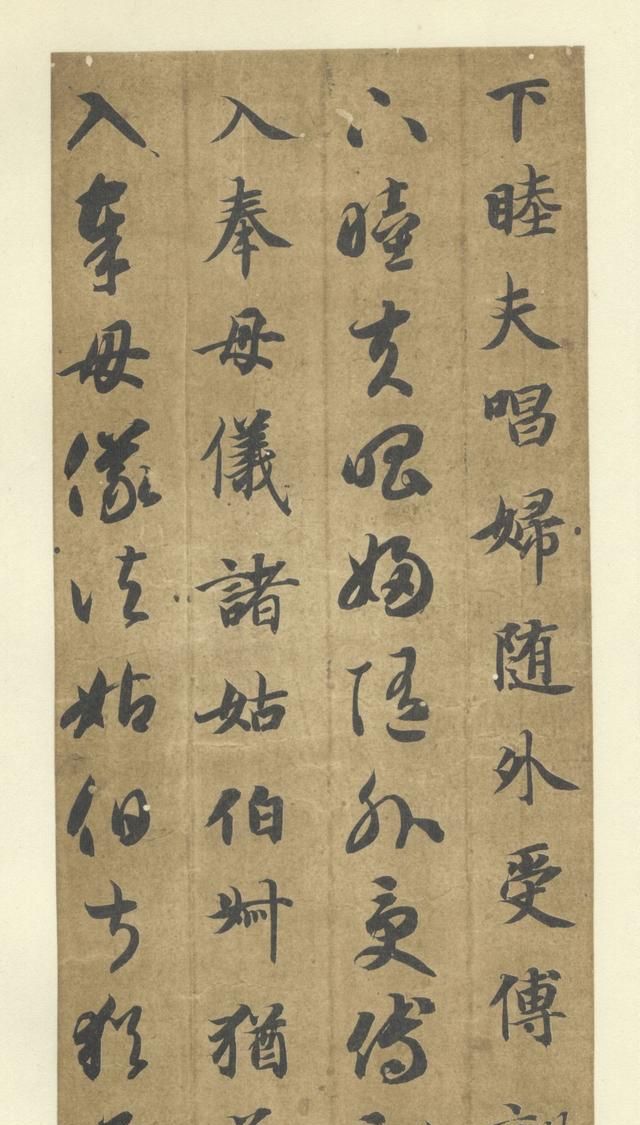 下睦夫唱婦随外受傅
下睦夫唱婦随外受傅
入奉母儀諸姑伯叔猶
入奉母儀諸姑伯叔猶